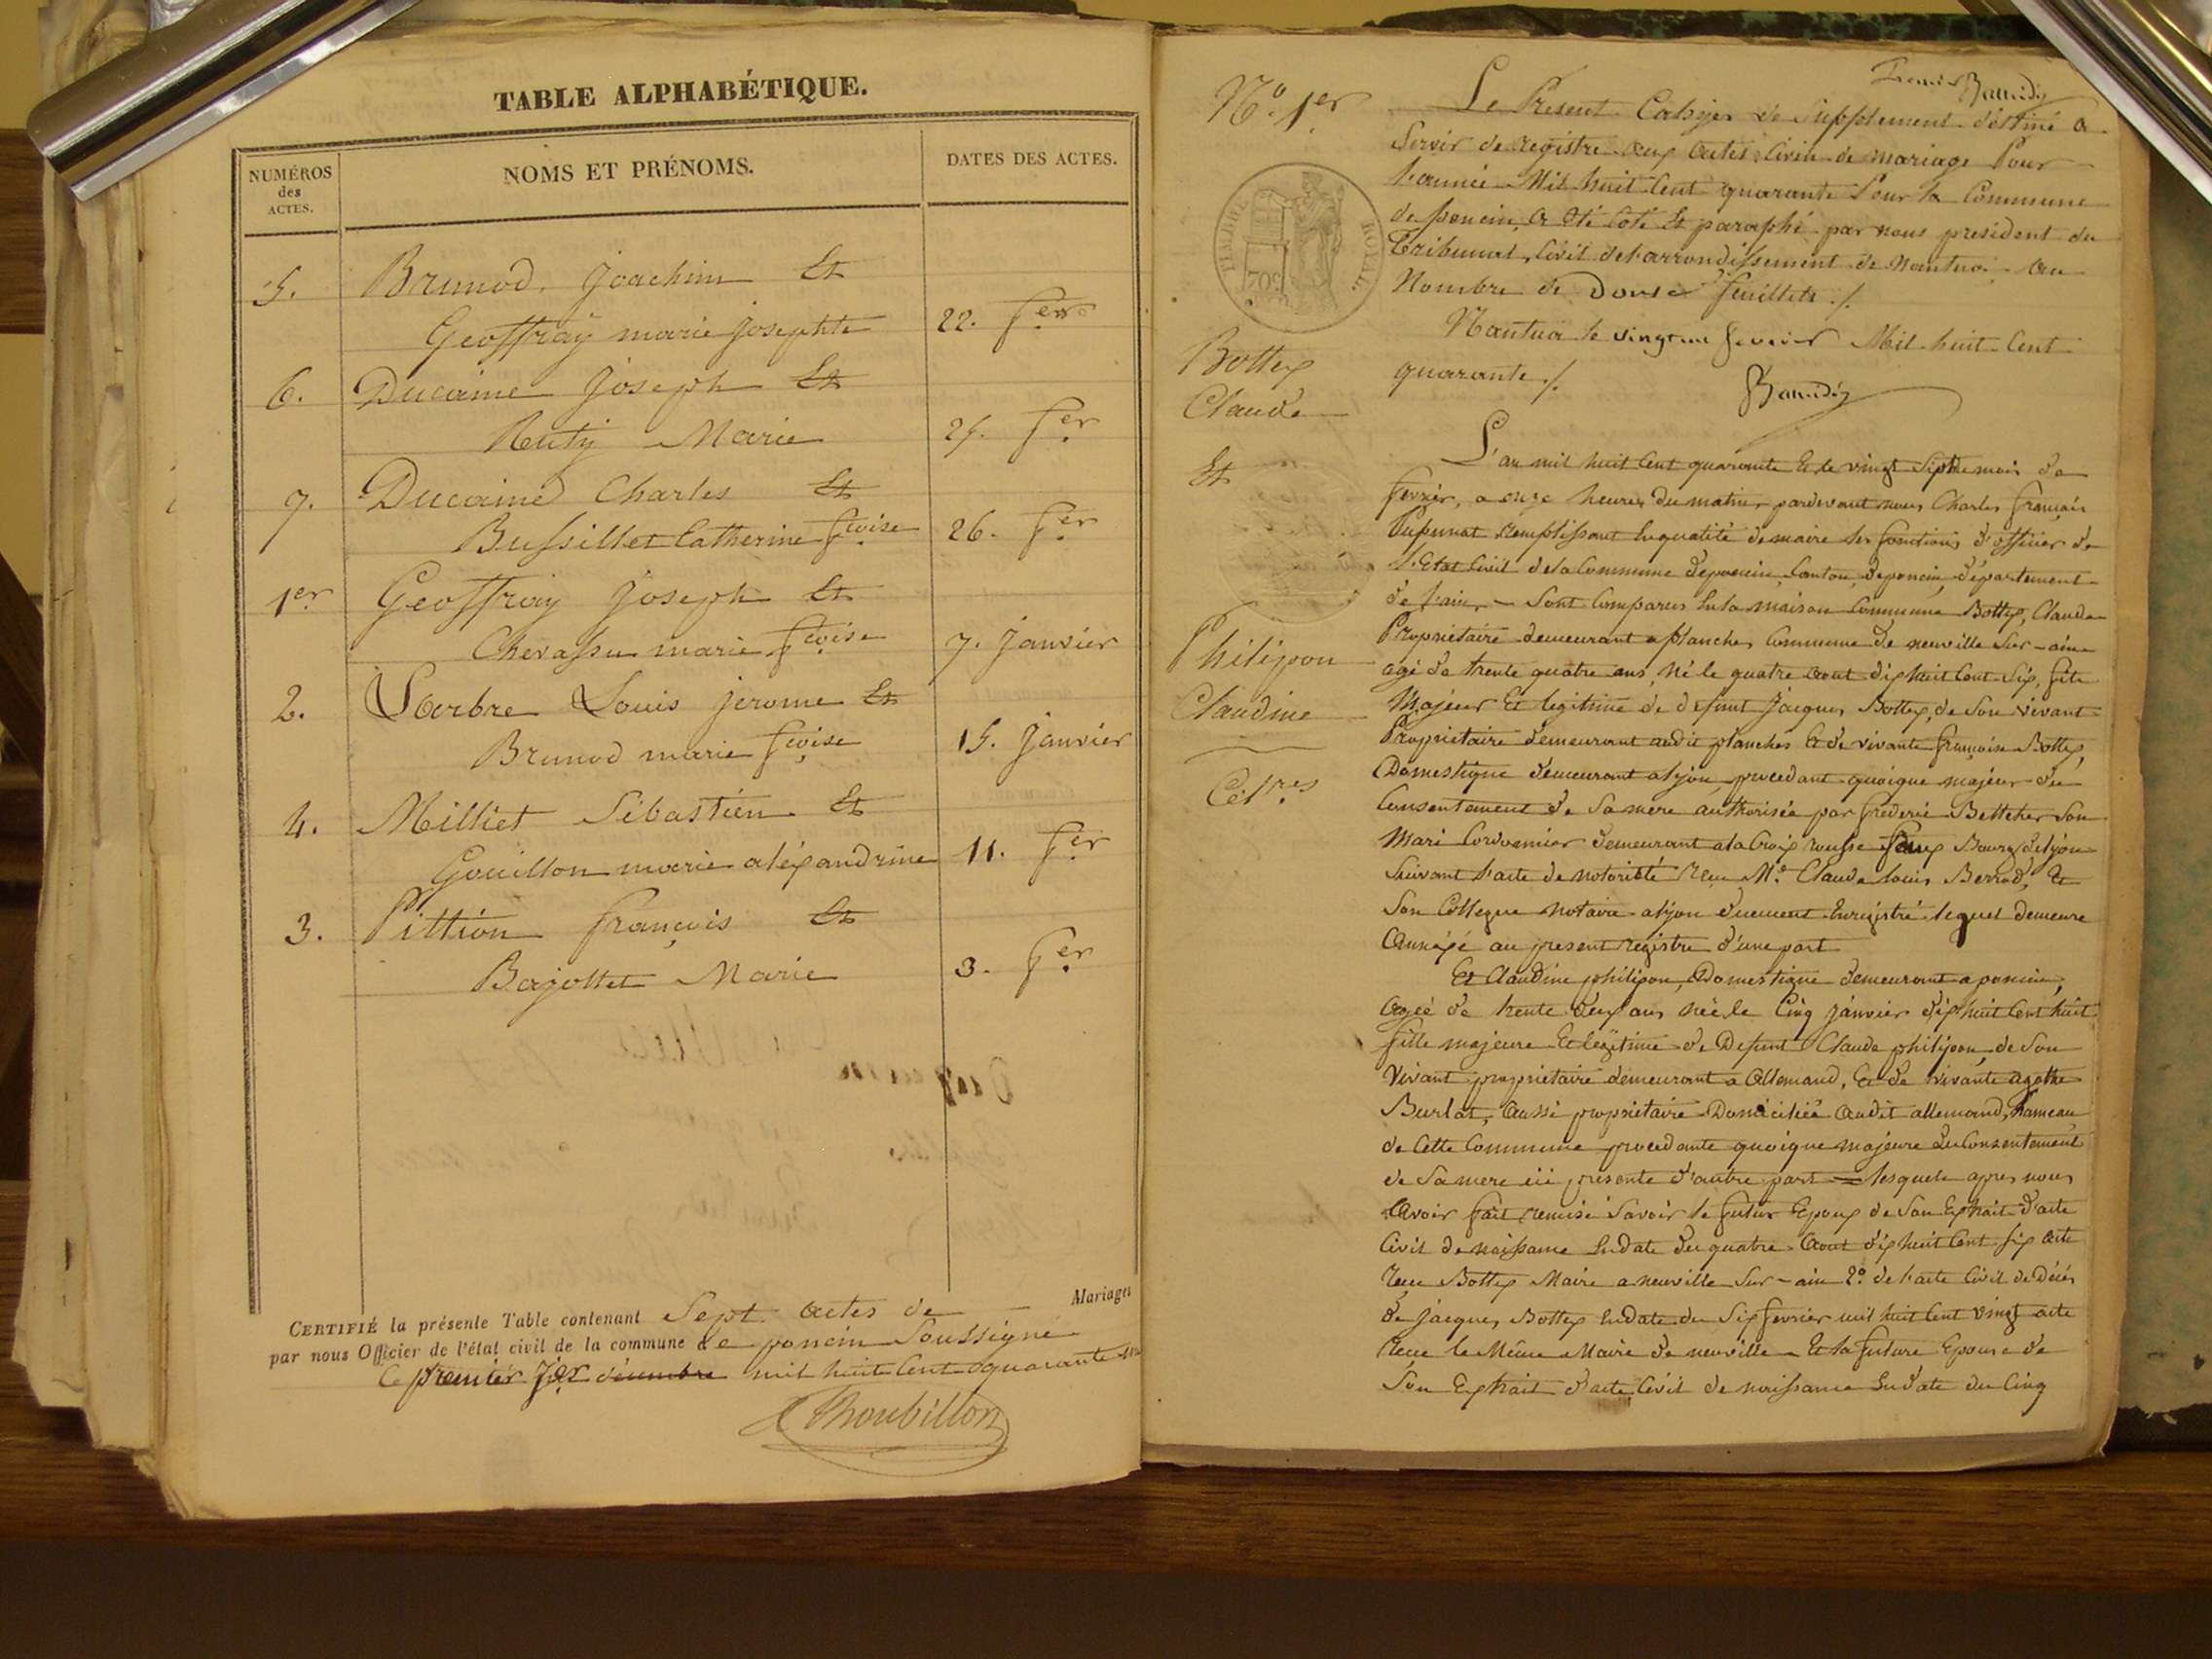 TABLE ALPHABÉTIQUE.
NUMÉROS
des
ACTES.
NOMS ET PRÉNOMS.
DATES DES ACTES.
5. Brunod. Joachim Et
Geoffray marie josephte 22. fer
6. Ducaime Joseph Et
Ruty Marie 25. fer
7. Ducaime Charles Et
Bussillet Catherine fçoise 26. fer
1er Geoffray Joseph Et
Chevassu marie fçoise 7. Janvier
2. Larbre Louis jerome Et
Brunod marie fçoise 15. Janvier
4. Milliet Sébastien Et
Gouillon marie aléxandrine 11. fer
3. Pittion françois Et
Bajollet Marie 3. fer
CERTIFIÉ la présente Table contenant Sept actes de Mariages
par nous Officier de l'état civil de la commune de poncin Soussigné
Ce premier jer décembre mil huit Cent quarante un
Thoubillon
No. 1er
TIMBRE ROYAL
70c
Bottex
Claude
Et
Philipon
Claudine
Célres
Baudin
Le Présent Cahyer de Supplement déstiné a
Servir de registre aux actes Civils de mariage Pour
l'année Mil huit Cent quarante Pour la Commune
de poncin, a été coté Et paraphé par nous president du
Tribunal Civil de l'arrondissement de Nantua. au
Nombre de Douze feuillets ./.
Nantua le vingt un fevrier Mil huit Cent
quarante ./.
Baudin
L'an mil huit Cent quarante Et le vingt Sept du mois de
fevrier, a onze heures du matin, pardevant nous Charles françois
remplissant En qualité de maire les fonctions d'officier de
l'Etat Civil de la Commune de poncin, Canton de poncin, département
de l'ain, — Sont Comparus En la maison Commune Bottex, Claude
Propriétaire demeurant a planches Commune de neuville Sur-ain
agé de trente quatre ans, né le quatre aout dix huit Cent Six, fils
Majeur Et legitime de defunt Jacques Bottex, de Son vivant
Propriétaire demeurant audit planches Et de vivante françoise Bottex,
Domestique demeurant a lyon, procedant quoique majeur du
Consentement de Sa mere authorisée par fréderic Bettcher Son
Mari Cordonnier demeurant a la Croix rousse faux Bourg de lyon
Suivant l'acte de notoriété reçu Me. Claude Louis Berrod, Et
Son Collegue notaire a lyon duement Enregistré lequel demeure
annéxé au present registre d'une part
Et Claudine philipon, Domestique demeurant a poncin,
agée de trente deux ans née le Cinq janvier dix huit Cent huit
fille majeure Et légitime de Defunt Claude philipon, de Son
Vivant propriétaire demeurant a Allemand, Et de vivante agathe
Burlat, aussi propriétaire Domiciliée audit allemand, hameau
de Cette Commune procedante quoique majeure du Consentement
de Sa mere ici présente d'autre part = lesquels apres nous
avoir fait remise Savoir le futur Epoux de Son Extrait d'acte
Civil de naissance En date du quatre aout dix huit Cent Six acte
reçu Bottex Maire a neuville Sur-ain 2o. de l'acte Civil de Décés
de Jacques Bottex En date du Six fevrier mil huit Cent vingt acte
reçu le Même Maire de neuville - Et la future Epouse de
Son Extrait d'acte Civil de naissance En date du Cinq